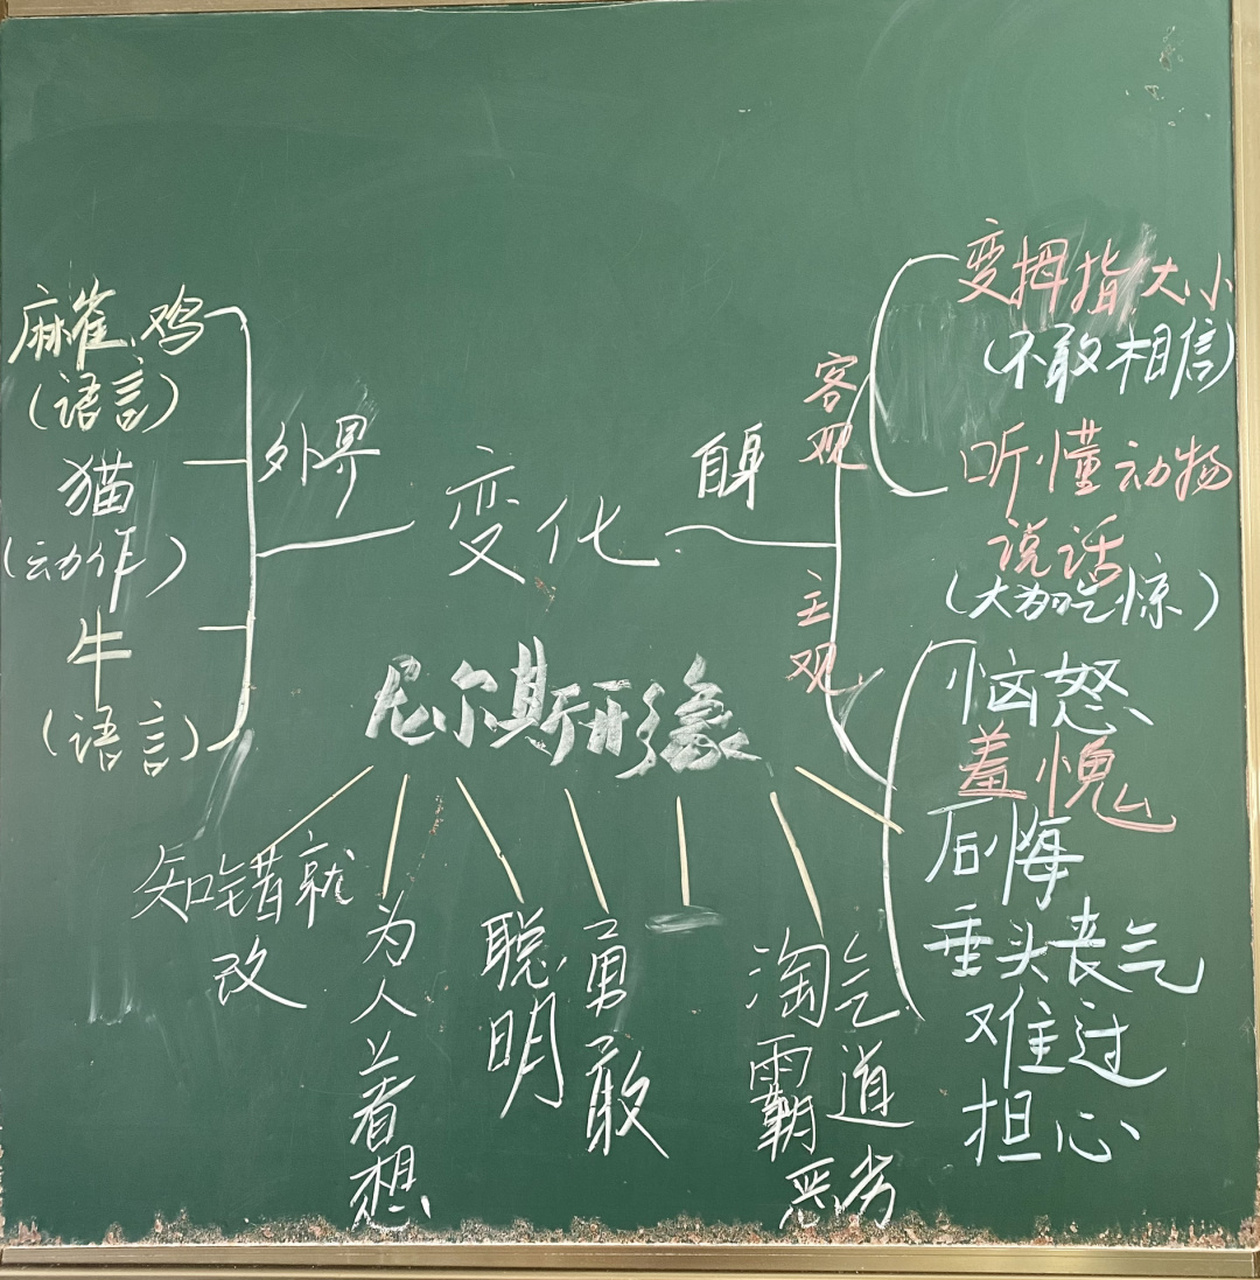 麻雀、鸡
(语言)
猫
(动作)
牛
(语言)
外界
变化
自身
客观
变拇指大小
(不敢相信)
听懂动物
说话
(大为吃惊)
主观
恼怒
羞愧
后悔
垂头丧气
难过
担心
尼尔斯形象
知错就
改
为人着想
聪明
勇敢
淘气
霸道
恶劣